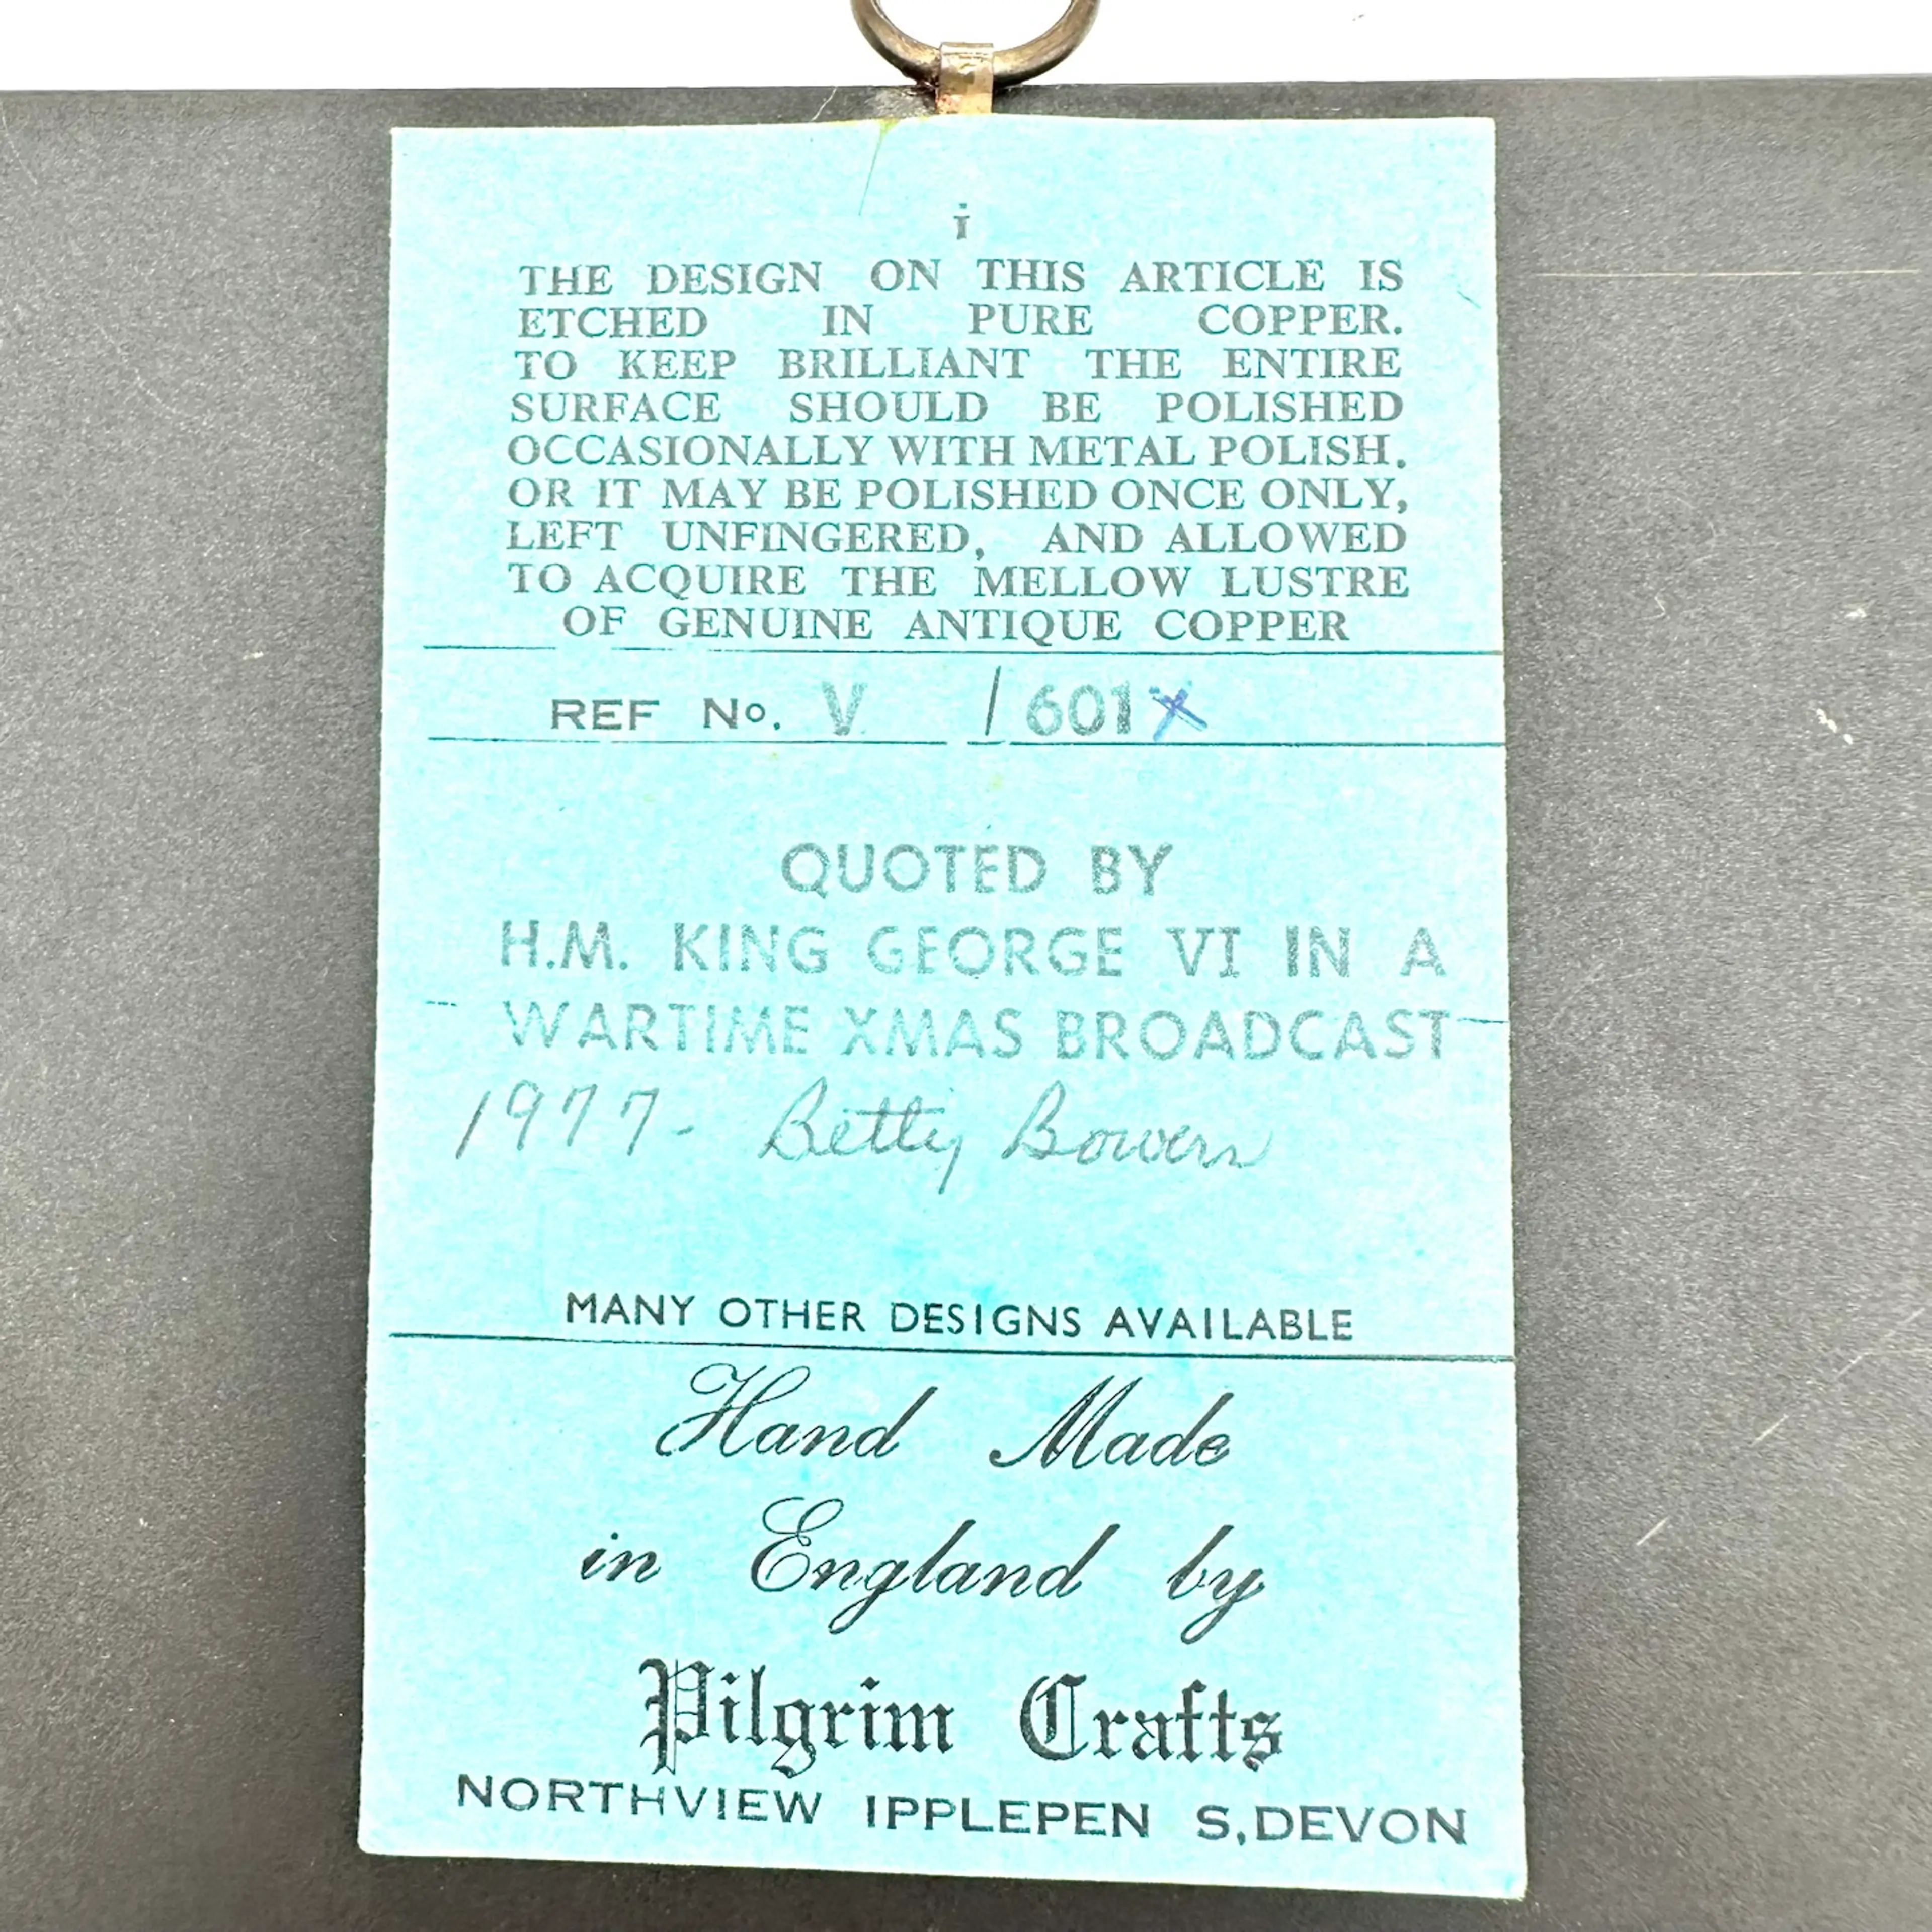 THE DESIGN ON THIS ARTICLE IS
ETCHED IN PURE COPPER.
TO KEEP BRILLIANT THE ENTIRE
SURFACE SHOULD BE POLISHED
OCCASIONALLY WITH METAL POLISH.
OR IT MAY BE POLISHED ONCE ONLY,
LEFT UNFINGERED, AND ALLOWED
TO ACQUIRE THE MELLOW LUSTRE
OF GENUINE ANTIQUE COPPER
REF No. V / 601X
QUOTED BY
H.M. KING GEORGE VI IN A
WARTIME XMAS BROADCAST
1977- Betty Bowers
MANY OTHER DESIGNS AVAILABLE
Hand Made
in England by
Pilgrim Crafts
NORTHVIEW IPPLEPEN S,DEVON